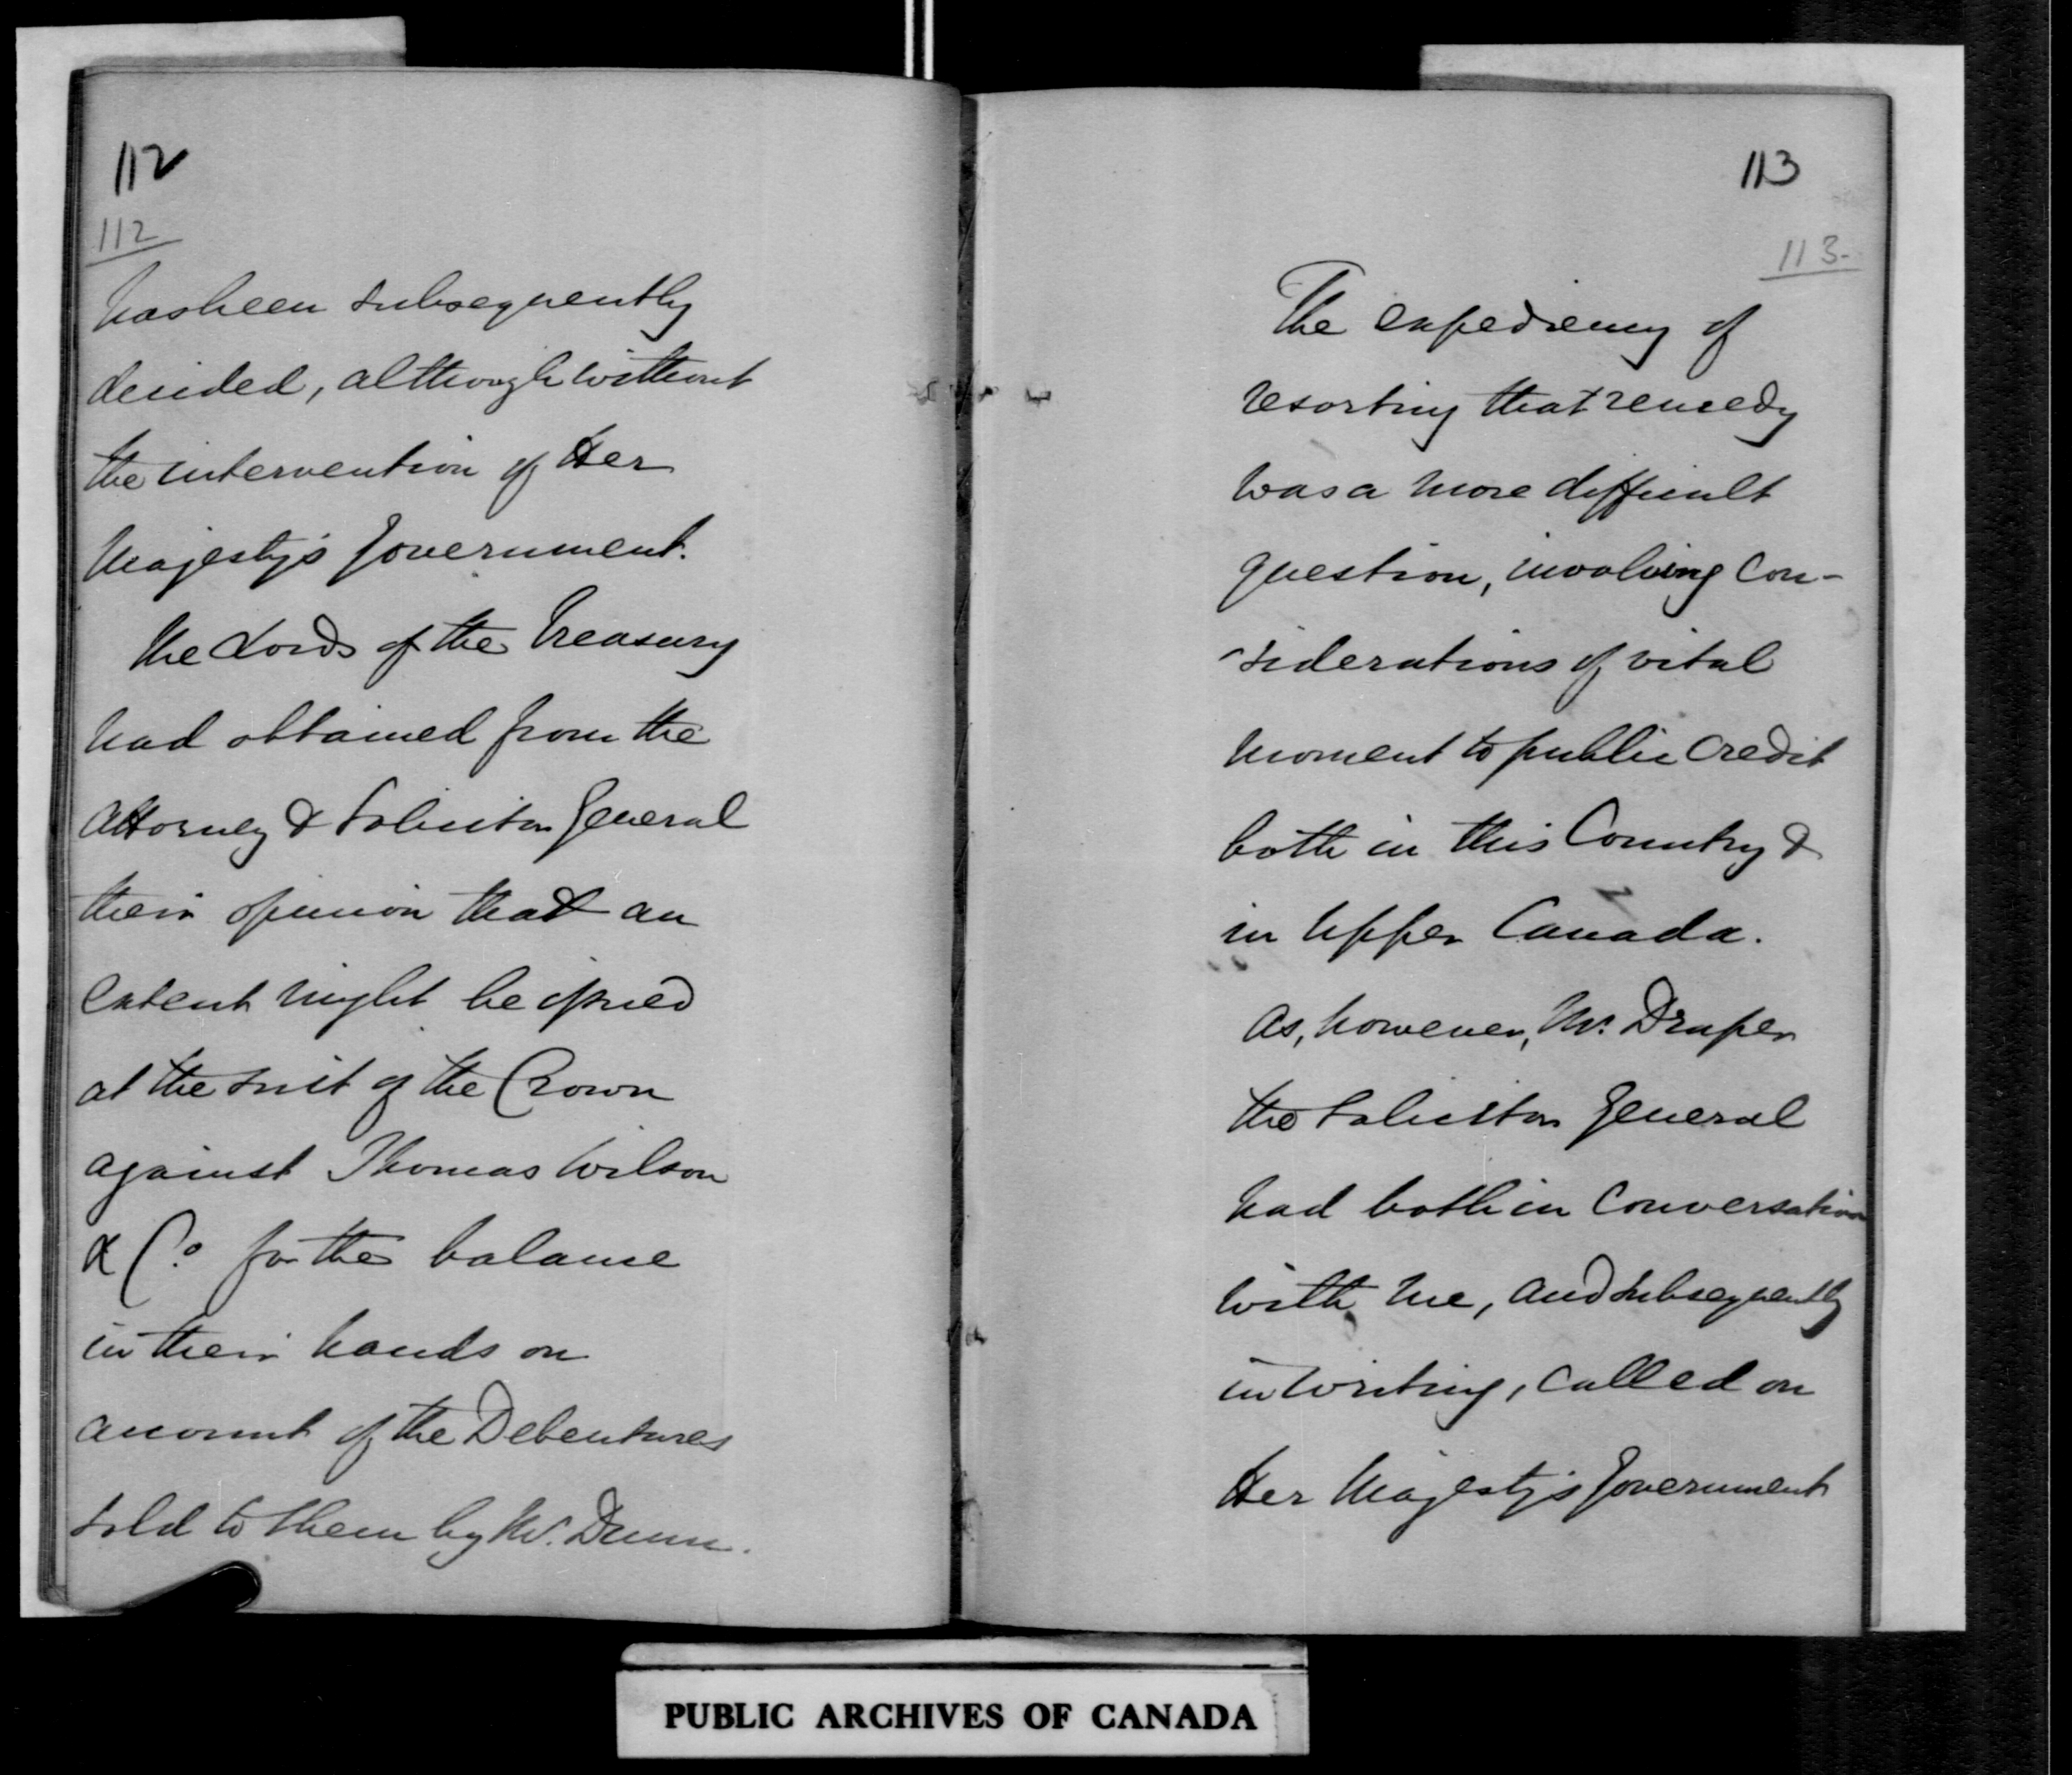 112
112
has been subsequently
decided, although without
the intervention of Her
Majesty's Government.
The Lords of the Treasury
had obtained from the
Attorney & Solicitor General
their opinion that an
extent might be issued
at the suit of the Crown
against Thomas Wilson
& Co for the balance
in their hands on
account of the Debentures
sold to them by Mr. Dunn.
113
113.
The expediency of
resorting that remedy
was a more difficult
question, involving con-
siderations of vital
moment to public credit
both in this Country &
in Upper Canada.
As, however, Mr. Draper
the Solicitor General
had both in conversation
with me, and subsequently
in writing, called on
Her Majesty's Government
PUBLIC ARCHIVES OF CANADA